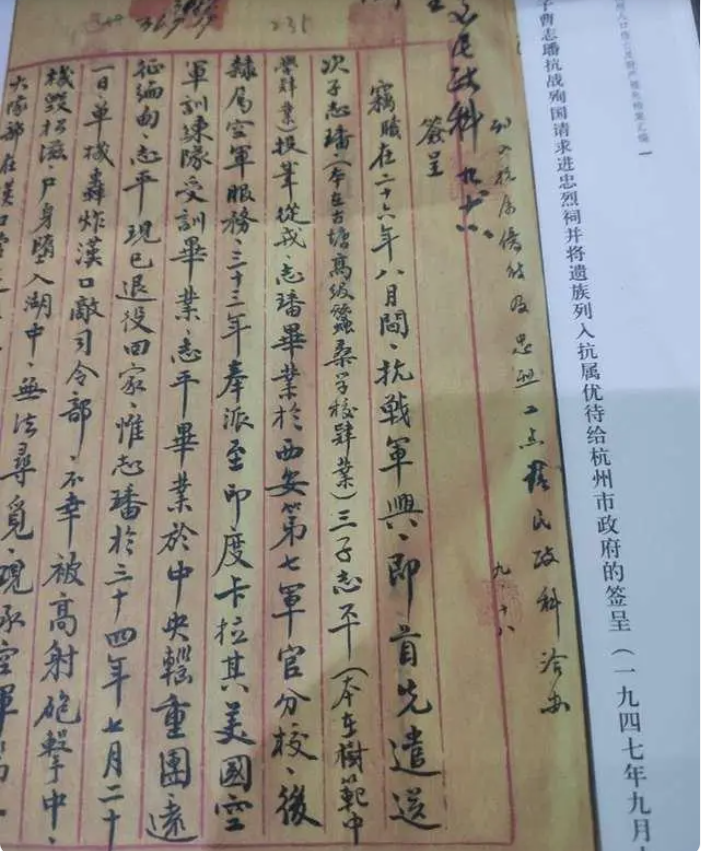 人口伤亡及财产损失档案汇编 一
子曹志璠抗战殉国请求进忠烈祠并将遗族列入抗属优待给杭州市政府的签呈（一九四七年九月
民政科洽办
九、十八
民政科 九、十八
签呈
竊職在二十六年八月間、抗戰軍興、即首先遣送
次子志璠、（本在古塘高級蠶桑学校肄業）三子志平（本在樹範中
學肄業）投筆從戎、志璠畢業於西安第七軍官分校、後
隸屬空軍服務、三十三年奉派至印度卡拉其美國空
軍訓練隊受訓畢業、志平畢業於中央輜重團、遠
征緬甸、志平現已退役回家、惟志璠於三十四年七月二十
一日單機轟炸漢口敵司令部、不幸被高射砲擊中、
機毀松滋、尸身墮入湖中、無法尋覓、現承空軍第
大隊部在漢口